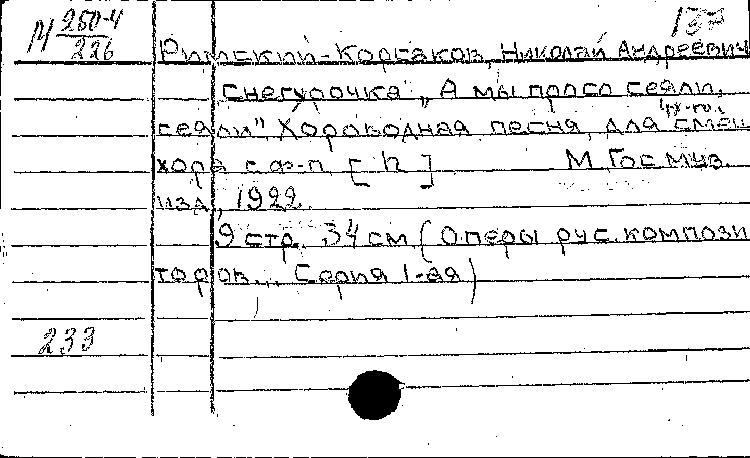 137
М 250-4
226
Римский-Корсаков, Николай Андреевич
Снегурочка „А мы просо сеяли,
сеяли". Хороводная песня для смеш.
4х-го.
хора с ф-п. [ П ] М. Гос муз.
изд., 1922.
9 стр. 34 см. (Оперы рус. компози
торов... Серия 1-ая)
233